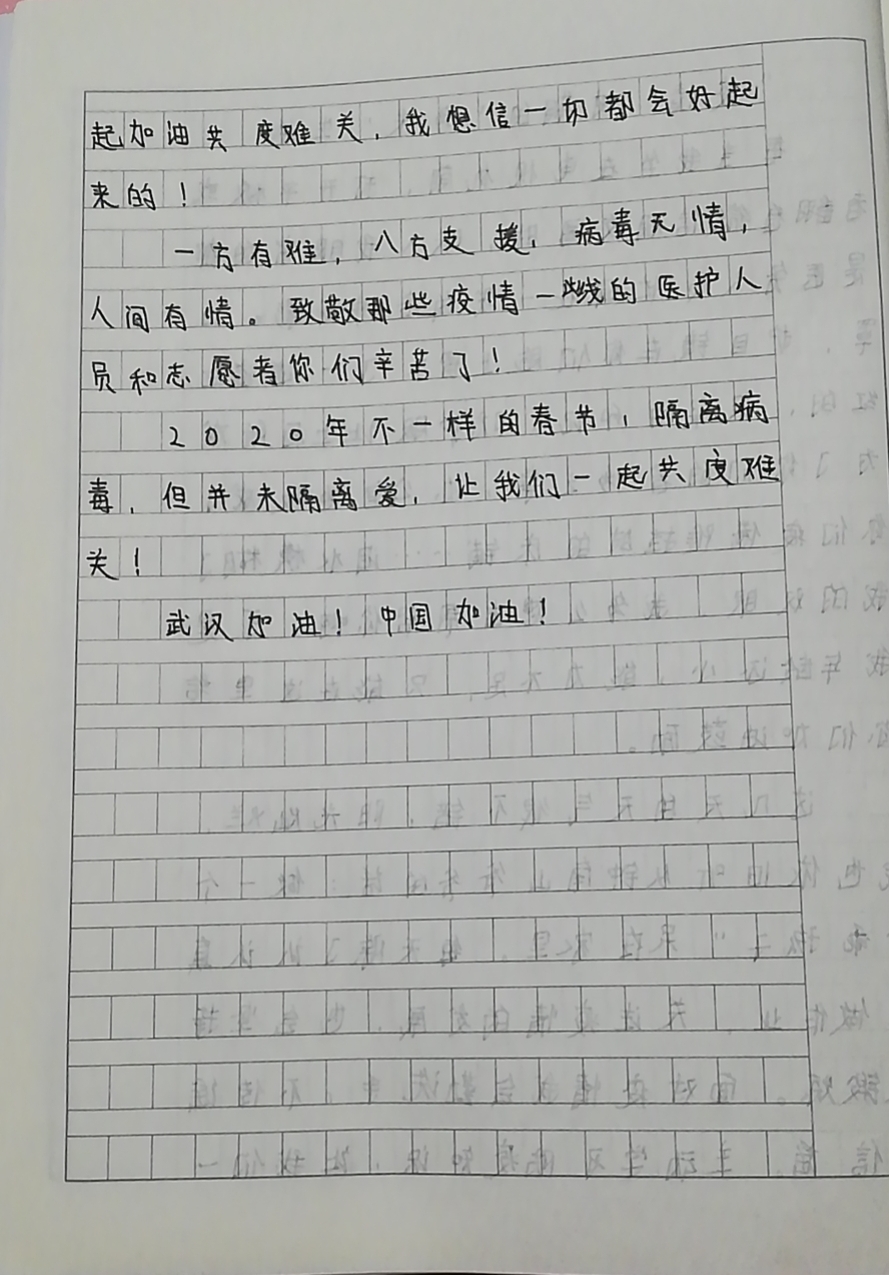 起加油共度难关，我想信一切都会好起
来的！
一方有难，八方支援，病毒无情，
人间有情。致敬那些疫情一线的医护人
员和志愿者你们辛苦了！
2020年不一样的春节，隔离病
毒，但并未隔离爱，让我们一起共度难
关！
武汉加油！中国加油！